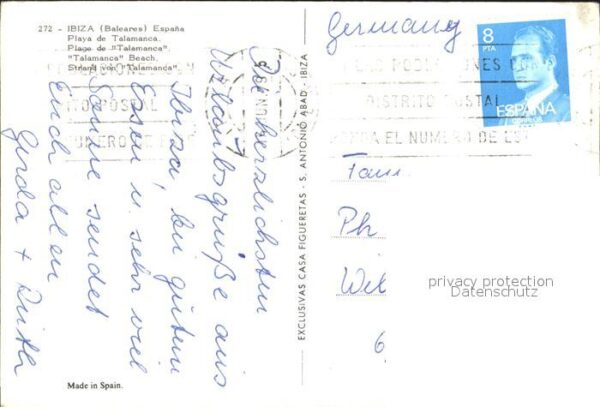 272 - IBIZA (Baleares) España
Playa de Talamanca.
Plage de "Talamanca".
"Talamanca" Beach.
Strand von "Talamanca".
Die herzlichsten
Urlaubsgrüße aus
Ibiza bei gutem
Essen u. sehr viel
Sonne sendet
Euch allen
Gerda + Ruth
Made in Spain.
EXCLUSIVAS CASA FIGUERETAS - S. ANTONIO ABAD - IBIZA
Germany
8
PTA
ESPAÑA
POBLACIONES CON
DISTRITO POSTAL
EL NUMERO DE
Fam.
Ph
Wil
6
privacy protection
Datenschutz